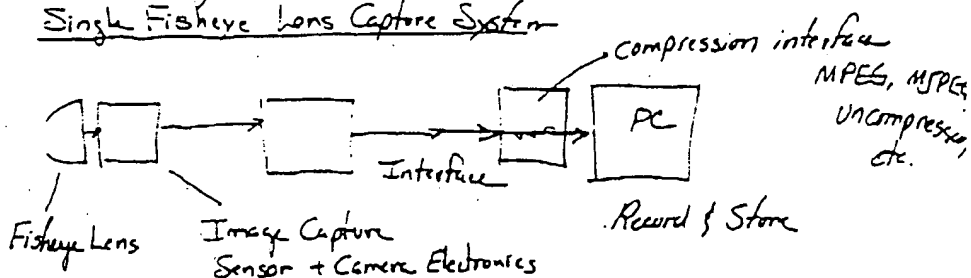 Single Fisheye Lens Capture System
compression interface
MPEG, MJPEG
Uncompressed,
etc.
PC
Interface
Record & Store
Fisheye Lens
Image Capture
Sensor + Camera Electronics